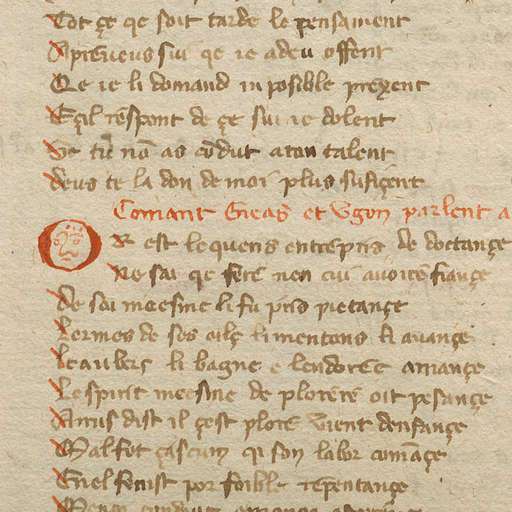 Tot çe qe soit tarde le pensament
Apreveus sui qe ie adeu offent
Qe ie li domand inposible prexent
Eçil respont de çe sui ie dolent
Se tu nō as cōdut a ton talent
deus te la don de moi plus sufiçent
Comant Eneas et Ugon parlent a
Or est le quens entrepris de doctançe
Ne sai qe fere nen cui avoire fiançe
De soi meesme li fu pris pietançe
Lermes de ses oilç li mentons li avançe
Le aubers li bagne e lendoree amançe
Le spirit meesme de plorere oit pesançe
Amis dist il çest plore vient denfançe
Mal fet çascum qi son labor comāçe
Enel fenist por foible repentançe